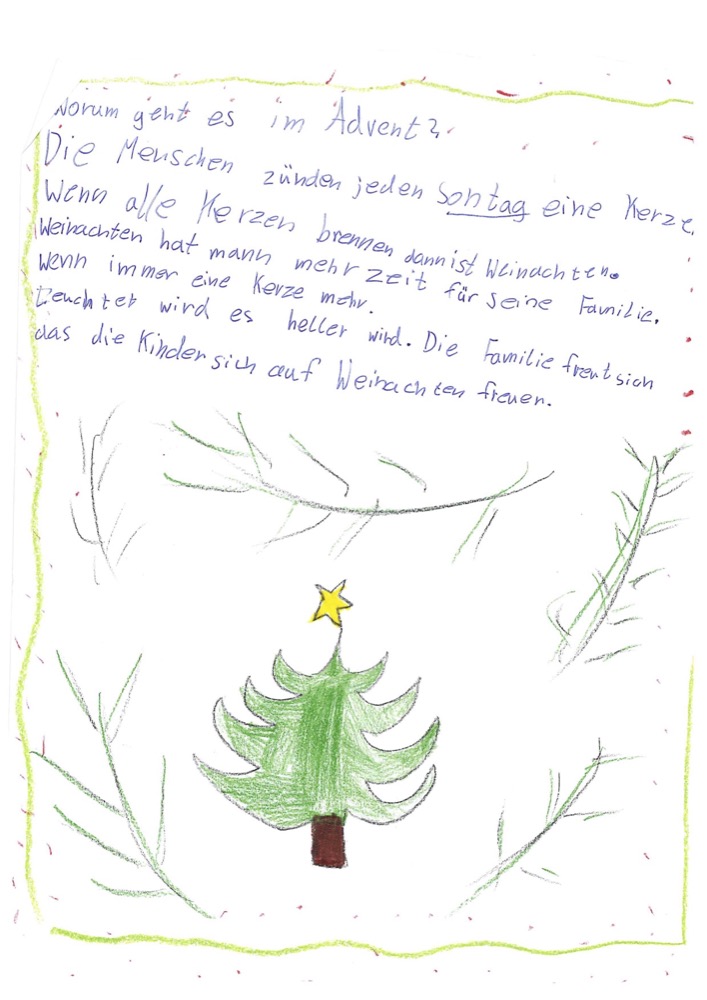 Worum geht es im Advent?
Die Menschen zünden jeden Sontag eine Kerze.
Wenn alle Kerzen brennen dann ist Weinachten.
Weinachten hat mann mehr zeit für seine Familie.
Wenn immer eine Kerze mehr.
Leuchtet wird es heller wird. Die Familie freut sich
das die Kinder sich auf Weinachten freuen.